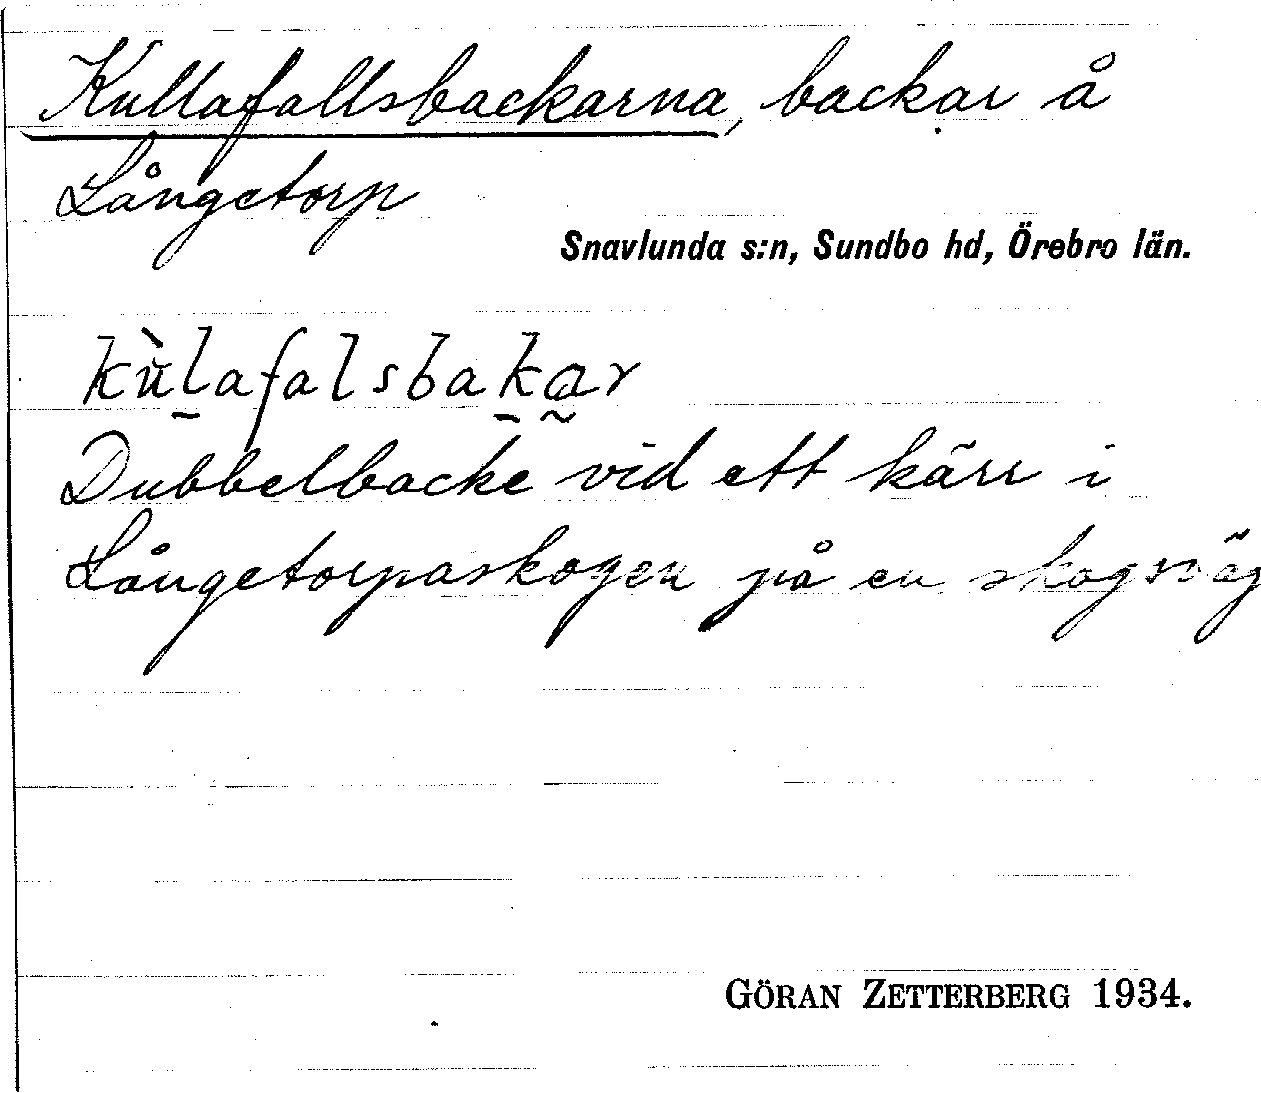 Kullafallsbackarna, backar å
Långetorp
Snavlunda s:n, Sundbo hd, Örebro län.
kùl̠afalsbak̠a̰r
Dubbelbacke vid ett kärr i
Långetorpaskogen på en skogsväg
GÖRAN ZETTERBERG 1934.